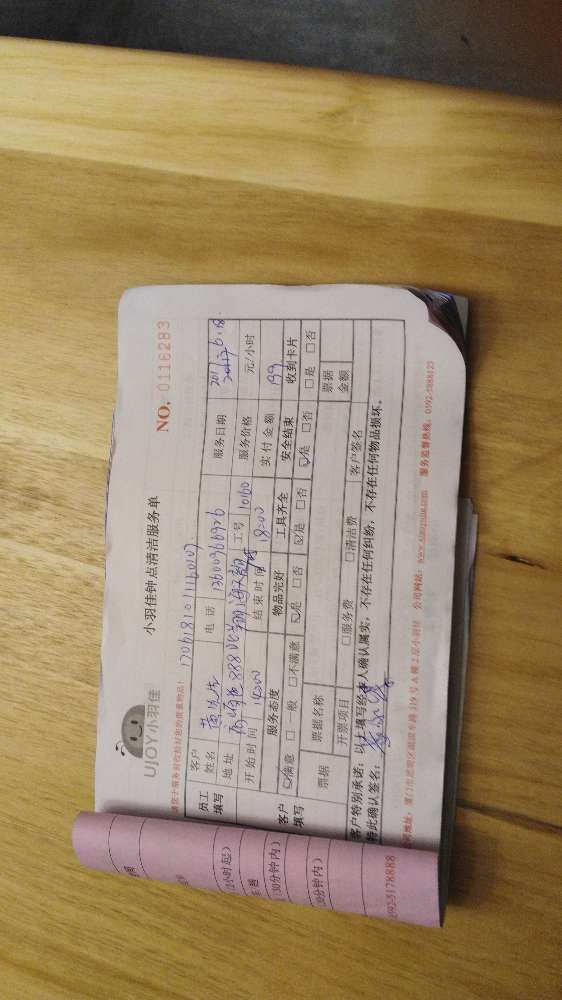 UJOY小羽佳
小羽佳钟点清洁服务单
NO. 0116283
请您于服务前收拾好您的贵重物品！
1706181011160107
员工填写
客户姓名 黄先生 电话 13600966926 服务日期 2017.6.18
地址 888 工号 10160 服务价格 元/小时
开始时间 14:00 结束时间 18:00 实付金额 199
客户填写
服务态度 物品完好 工具齐全 安全结束 收到卡片
☑满意 □一般 □不满意 ☑是 □否 ☑是 □否 ☑是 □否 □是 □否
票据 票据名称 票据金额
开票项目 □服务费 □清洁费 客户签名
客户特别承诺：以上填写经本人确认属实，不存在任何纠纷，不存在任何物品损坏。
特此确认签名：
公司网站： 服务监督热线：0592-5888123
0592-5178888
2小时起）
（30分钟内）
30分钟内）